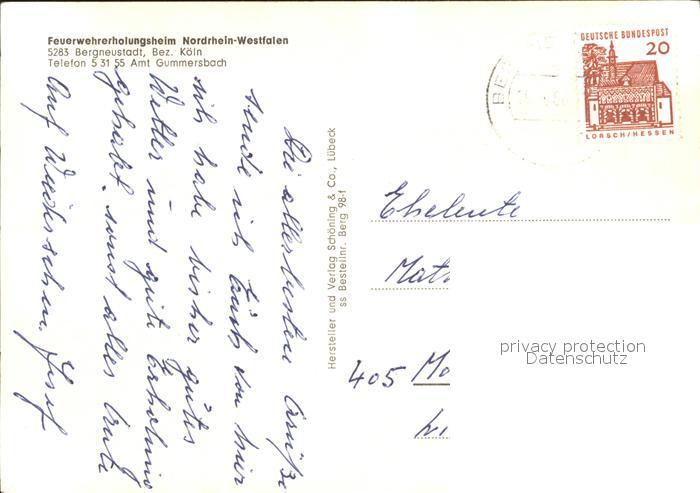 Feuerwehrerholungsheim Nordrhein-Westfalen
5283 Bergneustadt, Bez. Köln
Telefon 5 31 55 Amt Gummersbach
Die allerbesten Grüße
sende ich Euch von hier
ich habe bisher gutes
Wetter und gute Erholung
gehabt, sonst alles Gute
Auf Wiedersehen Josef
Hersteller und Verlag Schöning & Co., Lübeck
ss Bestellnr. Berg 98-f
BE
DEUTSCHE BUNDESPOST
20
LORSCH/HESSEN
Eheleute
Mat
405 Mo
privacy protection
Datenschutz